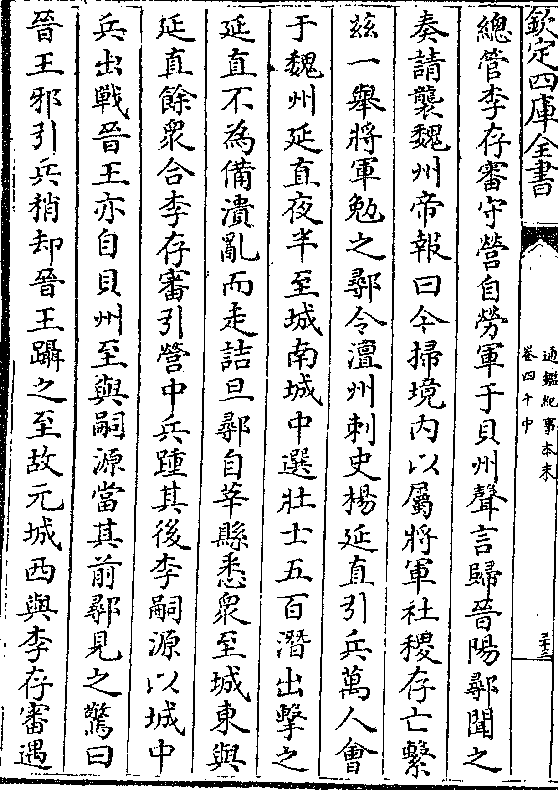 欽定四庫全書
通鑑紀事本末
卷四十中
總管李存審守營自勞軍于貝州聲言歸晉陽鄩聞之
奏請襲魏州帝報曰今掃境内以屬將軍社稷存亡繫
兹一舉將軍勉之鄩令澶州刺史楊延直引兵萬人會
于魏州延直夜半至城南城中選壯士五百潛出擊之
延直不為備潰亂而走詰旦鄩自莘縣悉衆至城東與
延直餘衆合李存審引營中兵踵其後李嗣源以城中
兵出戰晉王亦自貝州至與嗣源當其前鄩見之驚曰
晉王邪引兵稍却晉王躡之至故元城西與李存審遇